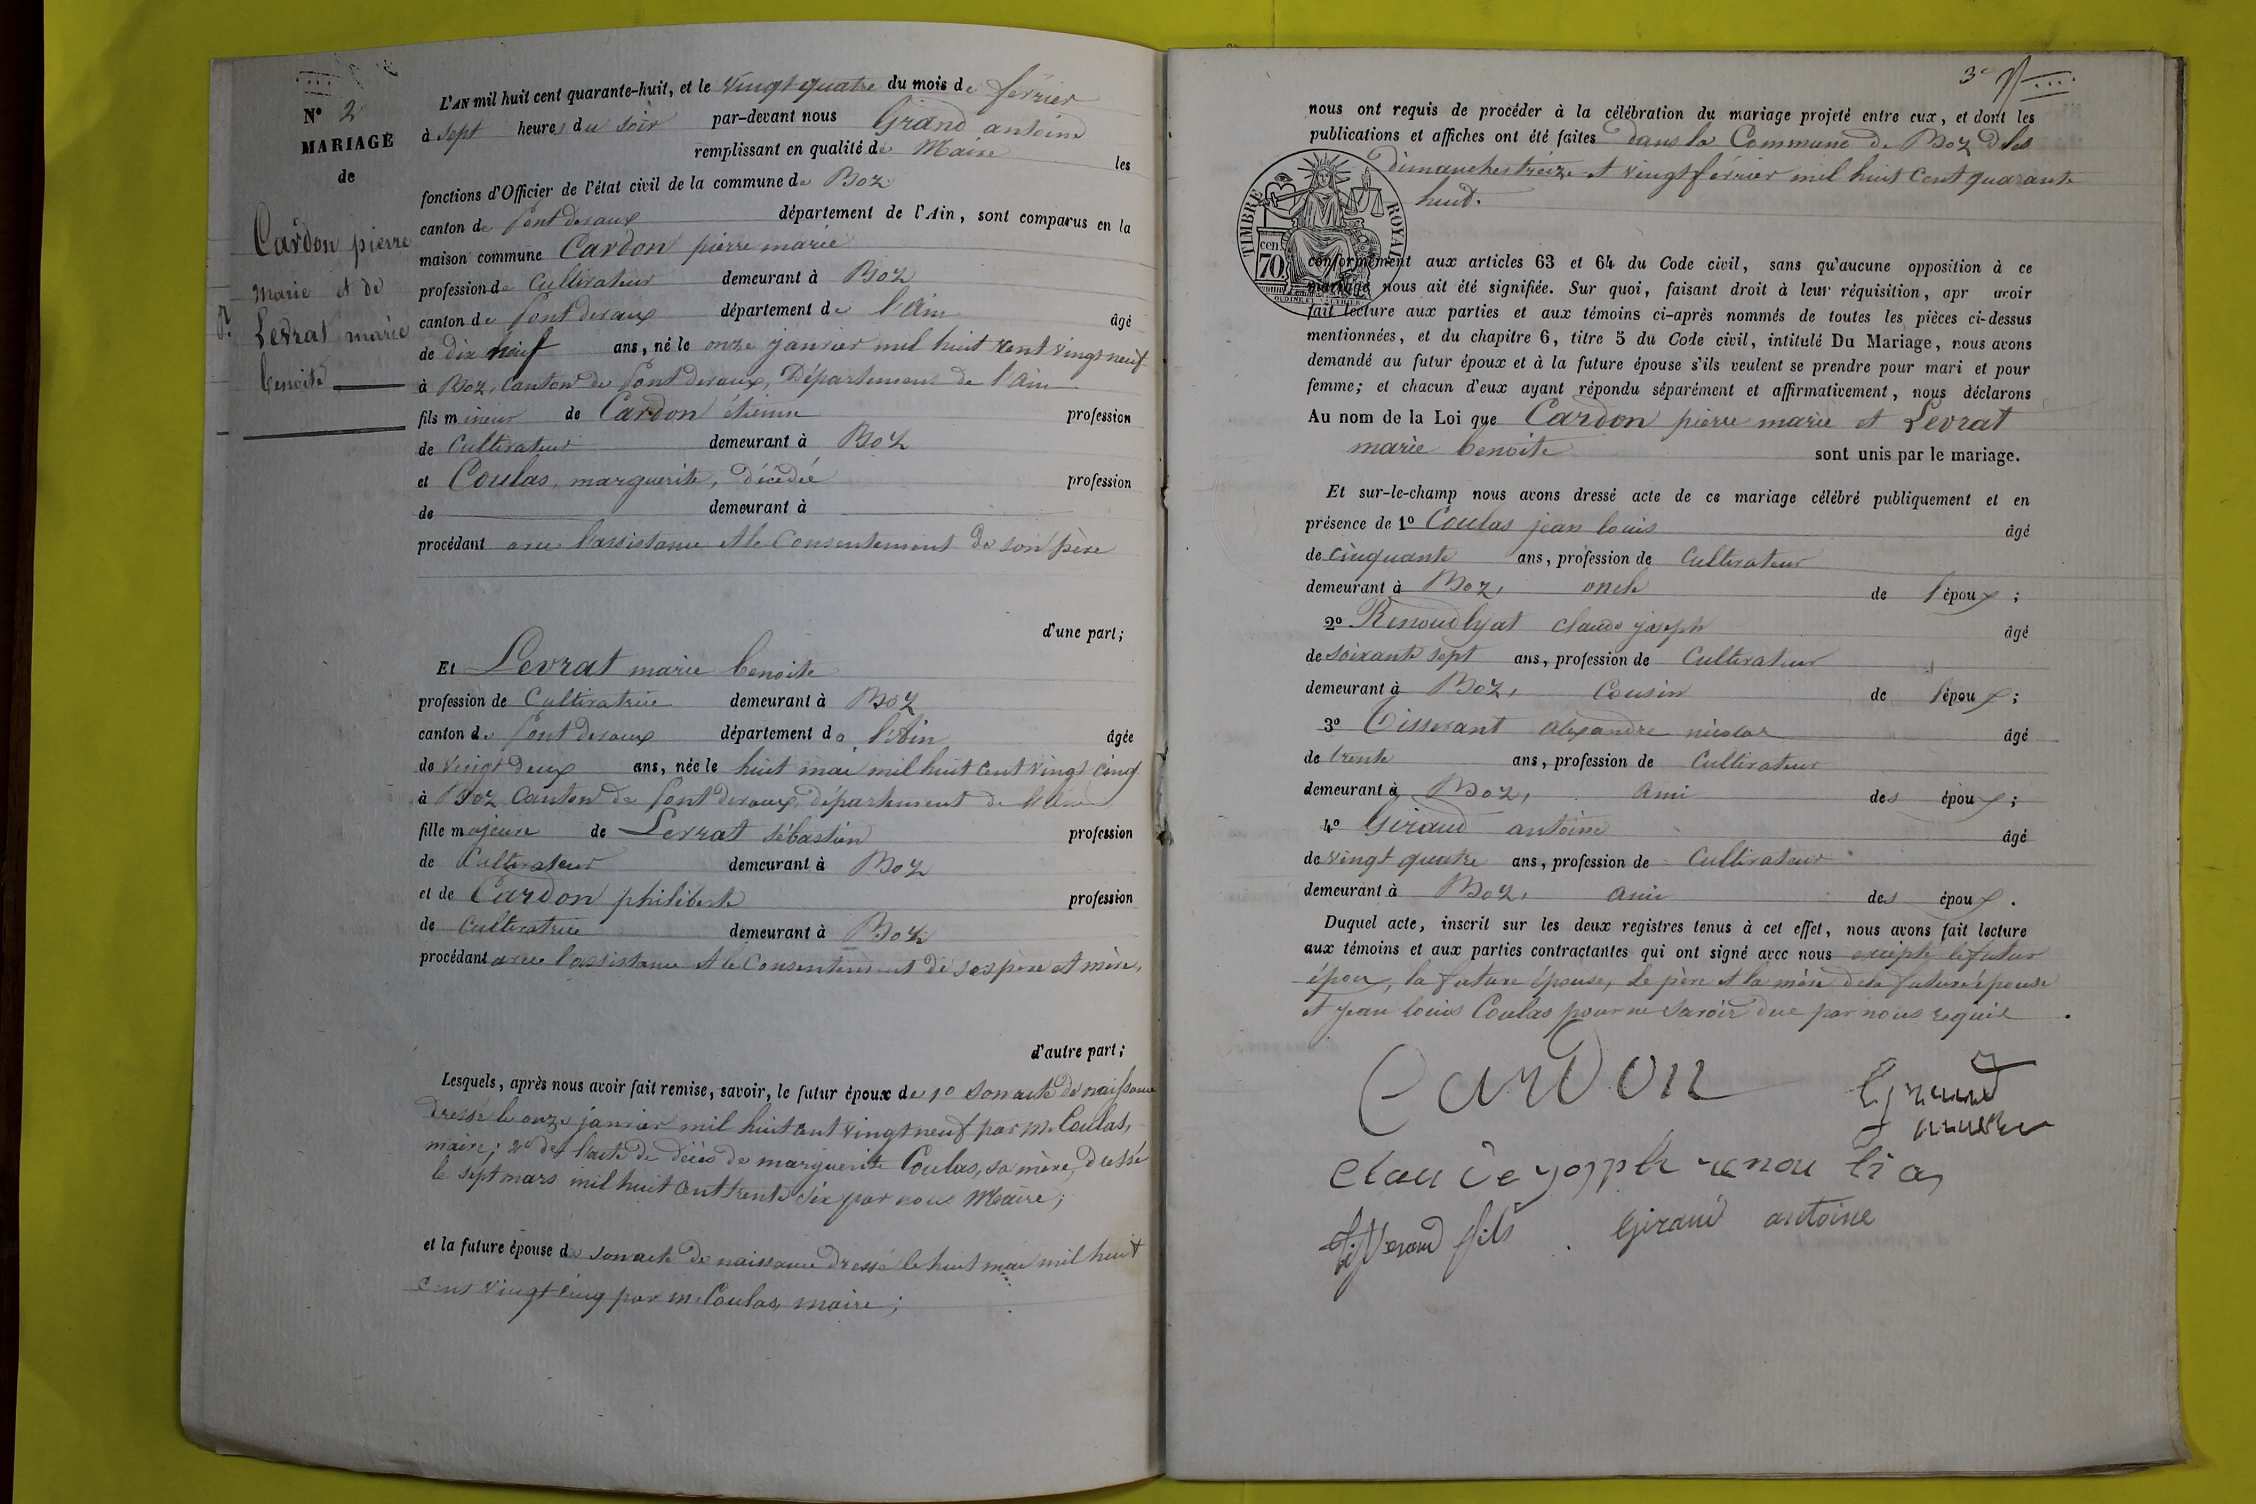 N° 2
MARIAGE
de
Cardon pierre
marie et de
Levrat marie
benoite
L'AN mil huit cent quarante-huit, et le vingt quatre du mois de février
à sept heures du soir par-devant nous Girand antoine
remplissant en qualité de Maire les
fonctions d'Officier de l'état civil de la commune de Boz
canton de Pont devaux département de l'Ain, sont comparus en la
maison commune Cardon pierre marie
profession de Cultivateur demeurant à Boz
canton de Pont devaux département de l'Ain âgé
de dix neuf ans, né le onze janvier mil huit cent vingt neuf
à Boz, Canton de Pont devaux, Département de l'Ain
fils mineur de Cardon étienne profession
de Cultivateur demeurant à Boz
et Coulas marguerite, décédée profession
de demeurant à
procédant avec l'assistance et le Consentement de son père
d'une part;
Et Levrat marie benoite
profession de Cultivatrice demeurant à Boz
canton de Pont devaux département de l'Ain âgée
de vingt deux ans, née le huit mai mil huit cent vingt cinq
à Boz Canton de Pont devaux, département de l'Ain
fille majeure de Levrat sébastien profession
de Cultivateur demeurant à Boz
et de Cardon philiberte profession
de Cultivatrice demeurant à Boz
procédant avec l'assistance et le Consentement de ses père et mère,
d'autre part;
Lesquels, après nous avoir fait remise, savoir, le futur époux de 1° son acte de naissance
dressé le onze janvier mil huit cent vingt neuf par m. Coulas,
maire; 2° de l'acte de décès de marguerite Coulas, sa mère, dressé
le sept mars mil huit cent trente six par nous Maire;
et la future épouse de son acte de naissance dressé le huit mai mil huit
cent vingt cinq par m. Coulas, maire;
3e
nous ont requis de procéder à la célébration du mariage projeté entre eux, et dont les
publications et affiches ont été faites dans la Commune de Boz les
dimanches treize et vingt février mil huit cent quarante
huit.
TIMBRE ROYAL
cen. 70
conformément aux articles 63 et 64 du Code civil, sans qu'aucune opposition à ce
mariage nous ait été signifiée. Sur quoi, faisant droit à leur réquisition, apr avoir
fait lecture aux parties et aux témoins ci-après nommés de toutes les pièces ci-dessus
mentionnées, et du chapitre 6, titre 5 du Code civil, intitulé Du Mariage, nous avons
demandé au futur époux et à la future épouse s'ils veulent se prendre pour mari et pour
femme; et chacun d'eux ayant répondu séparément et affirmativement, nous déclarons
Au nom de la Loi que Cardon pierre marie et Levrat
marie benoite sont unis par le mariage.
Et sur-le-champ nous avons dressé acte de ce mariage célébré publiquement et en
présence de 1° Coulas jean louis âgé
de cinquante ans, profession de Cultivateur
demeurant à Boz, oncle de l'époux;
2° Renoudlyat claude joseph âgé
de soixante sept ans, profession de Cultivateur
demeurant à Boz, Cousin de l'époux;
3° Tisserant alexandre nicolas âgé
de trente ans, profession de Cultivateur
demeurant à Boz, Ami des époux;
4° Giraud antoine âgé
de vingt quatre ans, profession de Cultivateur
demeurant à Boz, ami des époux.
Duquel acte, inscrit sur les deux registres tenus à cet effet, nous avons fait lecture
aux témoins et aux parties contractantes qui ont signé avec nous excepté le futur
époux, la future épouse, le père et la mère de la future épouse
et jean louis Coulas pour ne savoir due par nous requis.
Cardon
claude yospph renoulia
fils
Giraud antoine